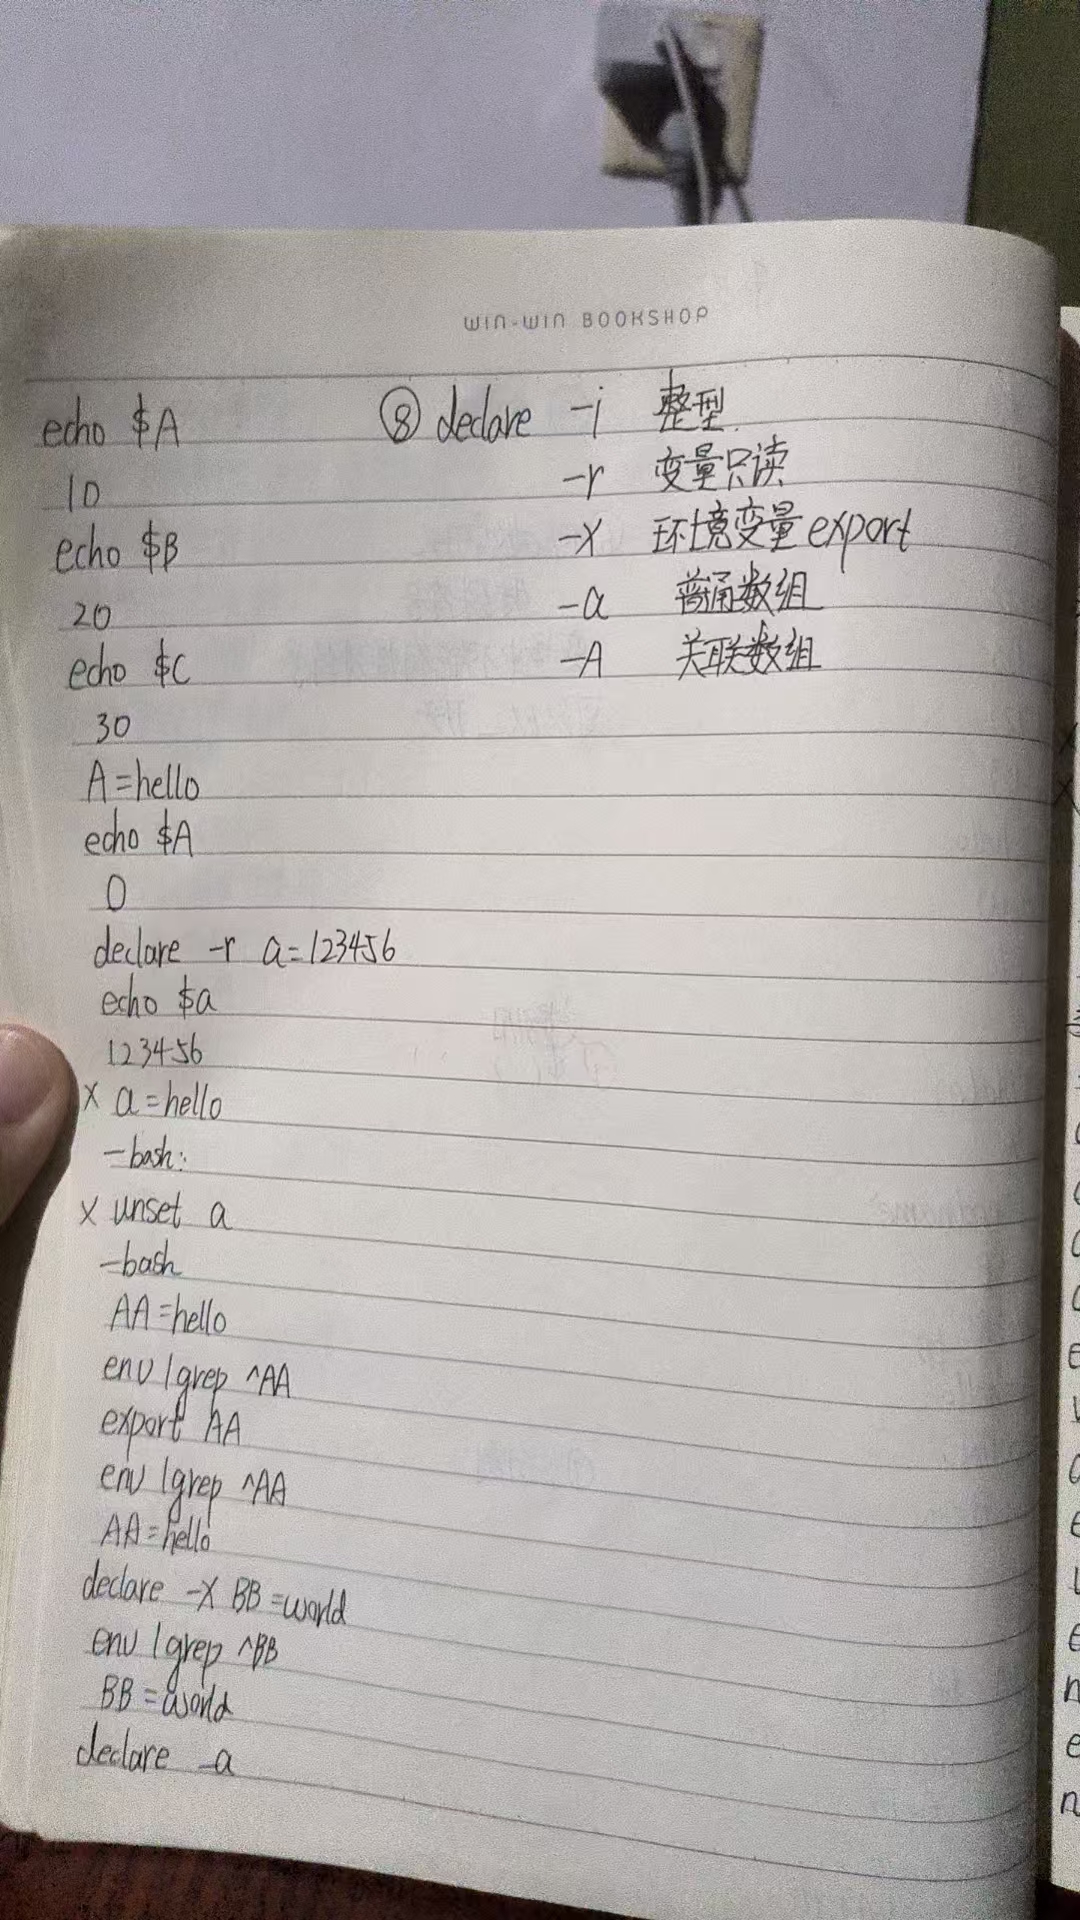 WIN-WIN BOOKSHOP
echo $A
10
echo $B
20
echo $C
30
A=hello
echo $A
0
declare -r a=123456
echo $a
123456
× a=hello
-bash:
× unset a
-bash
AA=hello
env |grep ^AA
export AA
env |grep ^AA
AA=hello
declare -x BB=world
env |grep ^BB
BB=world
declare -a
⑧ declare -i 整型.
-r 变量只读
-x 环境变量export
-a 普通数组
-A 关联数组